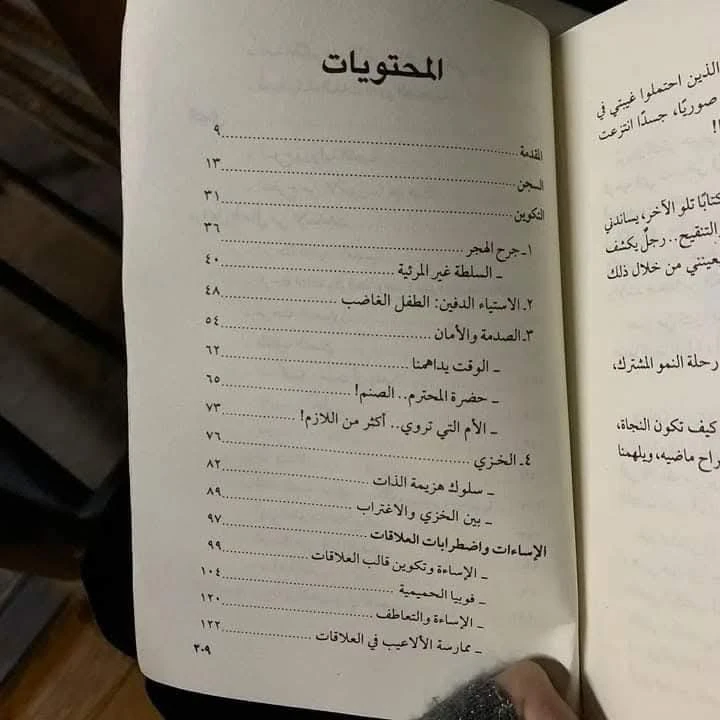 المحتويات
المقدمة ........ ٩
السجن ........ ١٣
التكوين ........ ٣١
١ـ جرح الهجر ........ ٣٦
ـ السلطة غير المرئية ........ ٤٠
٢ـ الاستياء الدفين: الطفل الغاضب ........ ٤٨
٣ـ الصدمة والأمان ........ ٥٤
ـ الوقت يداهمنا ........ ٦٢
ـ حضرة المحترم.. الصنم! ........ ٦٥
ـ الأم التي تروي.. أكثر من اللازم! ........ ٧٣
٤ـ الخزي ........ ٧٦
ـ سلوك هزيمة الذات ........ ٨٢
ـ بين الخزي والاغتراب ........ ٨٩
الإساءات واضطرابات العلاقات ........ ٩٧
ـ الإساءة وتكوين قالب العلاقات ........ ٩٩
ـ فوبيا الحميمية ........ ١٠٤
ـ الإساءة والتعاطف ........ ١٢٠
ـ ممارسة الألاعيب في العلاقات ........ ١٢٢
٣٠٩
الذين احتملوا غيبتي في
صوريًا، جسدًا انتزعت
!
كتابًا تلو الآخر، يساندني
والتنقيح.. رجلٌ يكشف
من خلال ذلك
رحلة النمو المشترك،
كيف تكون النجاة،
ماضيه، ويلهمنا